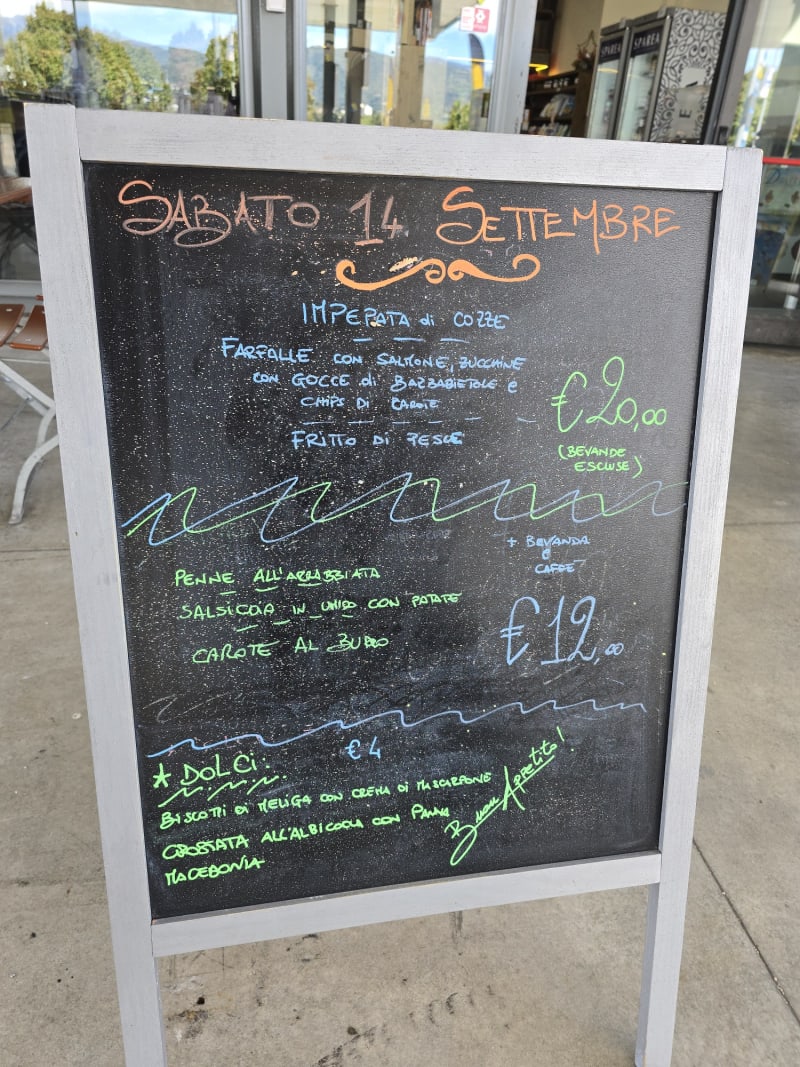 SPAREA
SPAREA
SABATO 14 SETTEMBRE
IMPEPATA di COZZE
FARFALLE CON SALMONE, ZUCCHINE
CON GOCCE di BARBABIETOLE e
CHIPS DI CAROTE
€20,00
FRITTO DI PESCE
(BEVANDE
ESCLUSE)
+ BEVANDA
e
CAFFE'
PENNE ALL'ARRABBIATA
SALSICCIA IN UMIDO CON PATATE
CAROTE AL BURRO
€12,00
€4
* DOLCI:
BISCOTTI DI MELIGA CON CREMA DI MASCARPONE
CROSTATA ALL'ALBICOCCA CON PANNA
MACEDONIA
Buon Appetito!